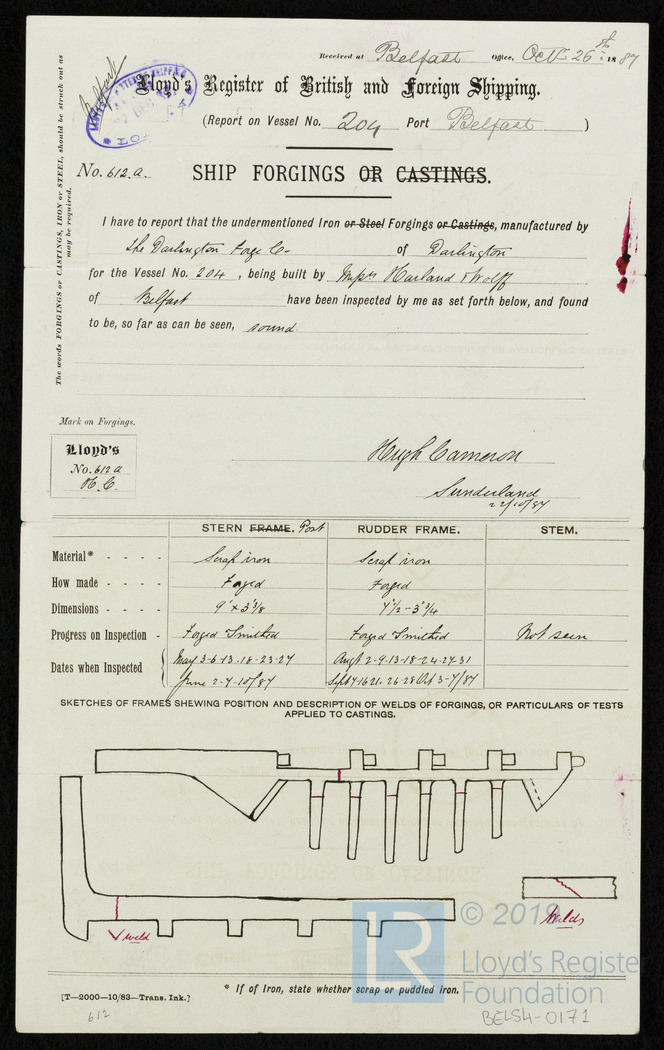 Received at Belfast Office, Oct 26th 1887
Belfast
Lloyd's Register of British and Foreign Shipping.
(Report on Vessel No. 204 Port Belfast )
No. 612.a.
SHIP FORGINGS OR CASTINGS.
The words FORGINGS or CASTINGS, IRON or STEEL, should be struck out as
may be required.
I have to report that the undermentioned Iron or Steel Forgings or Castings, manufactured by
the Darlington Forge Co of Darlington
for the Vessel No. 204 , being built by Messrs Harland & Wolff
of Belfast have been inspected by me as set forth below, and found
to be, so far as can be seen, sound.
Mark on Forgings.
Lloyd's
No. 612 a
H.C.
Hugh Cameron
Sunderland
22/10/87
STERN FRAME. Post RUDDER FRAME. STEM.
Material* - - - - Scrap iron Scrap iron
How made - - - - Forged Forged
Dimensions - - - - 9" x 3 5/8 7 1/2 - 3 3/4
Progress on Inspection - Forged Smithed Forged Smithed Not seen
Dates when Inspected { May 3-6-13-18-23-27 Augt 2-9-13-18-24-27-31
June 2-7-10/87 Sept 7-16 21-26-28 Oct 3-7/87
SKETCHES OF FRAMES SHEWING POSITION AND DESCRIPTION OF WELDS OF FORGINGS, OR PARTICULARS OF TESTS
APPLIED TO CASTINGS.
weld
Welds
* If of Iron, state whether scrap or puddled iron.
[T—2000—10/83—Trans. Ink.]
612
BELS4-0171
LR
© 2019
Lloyd's Register
Foundation